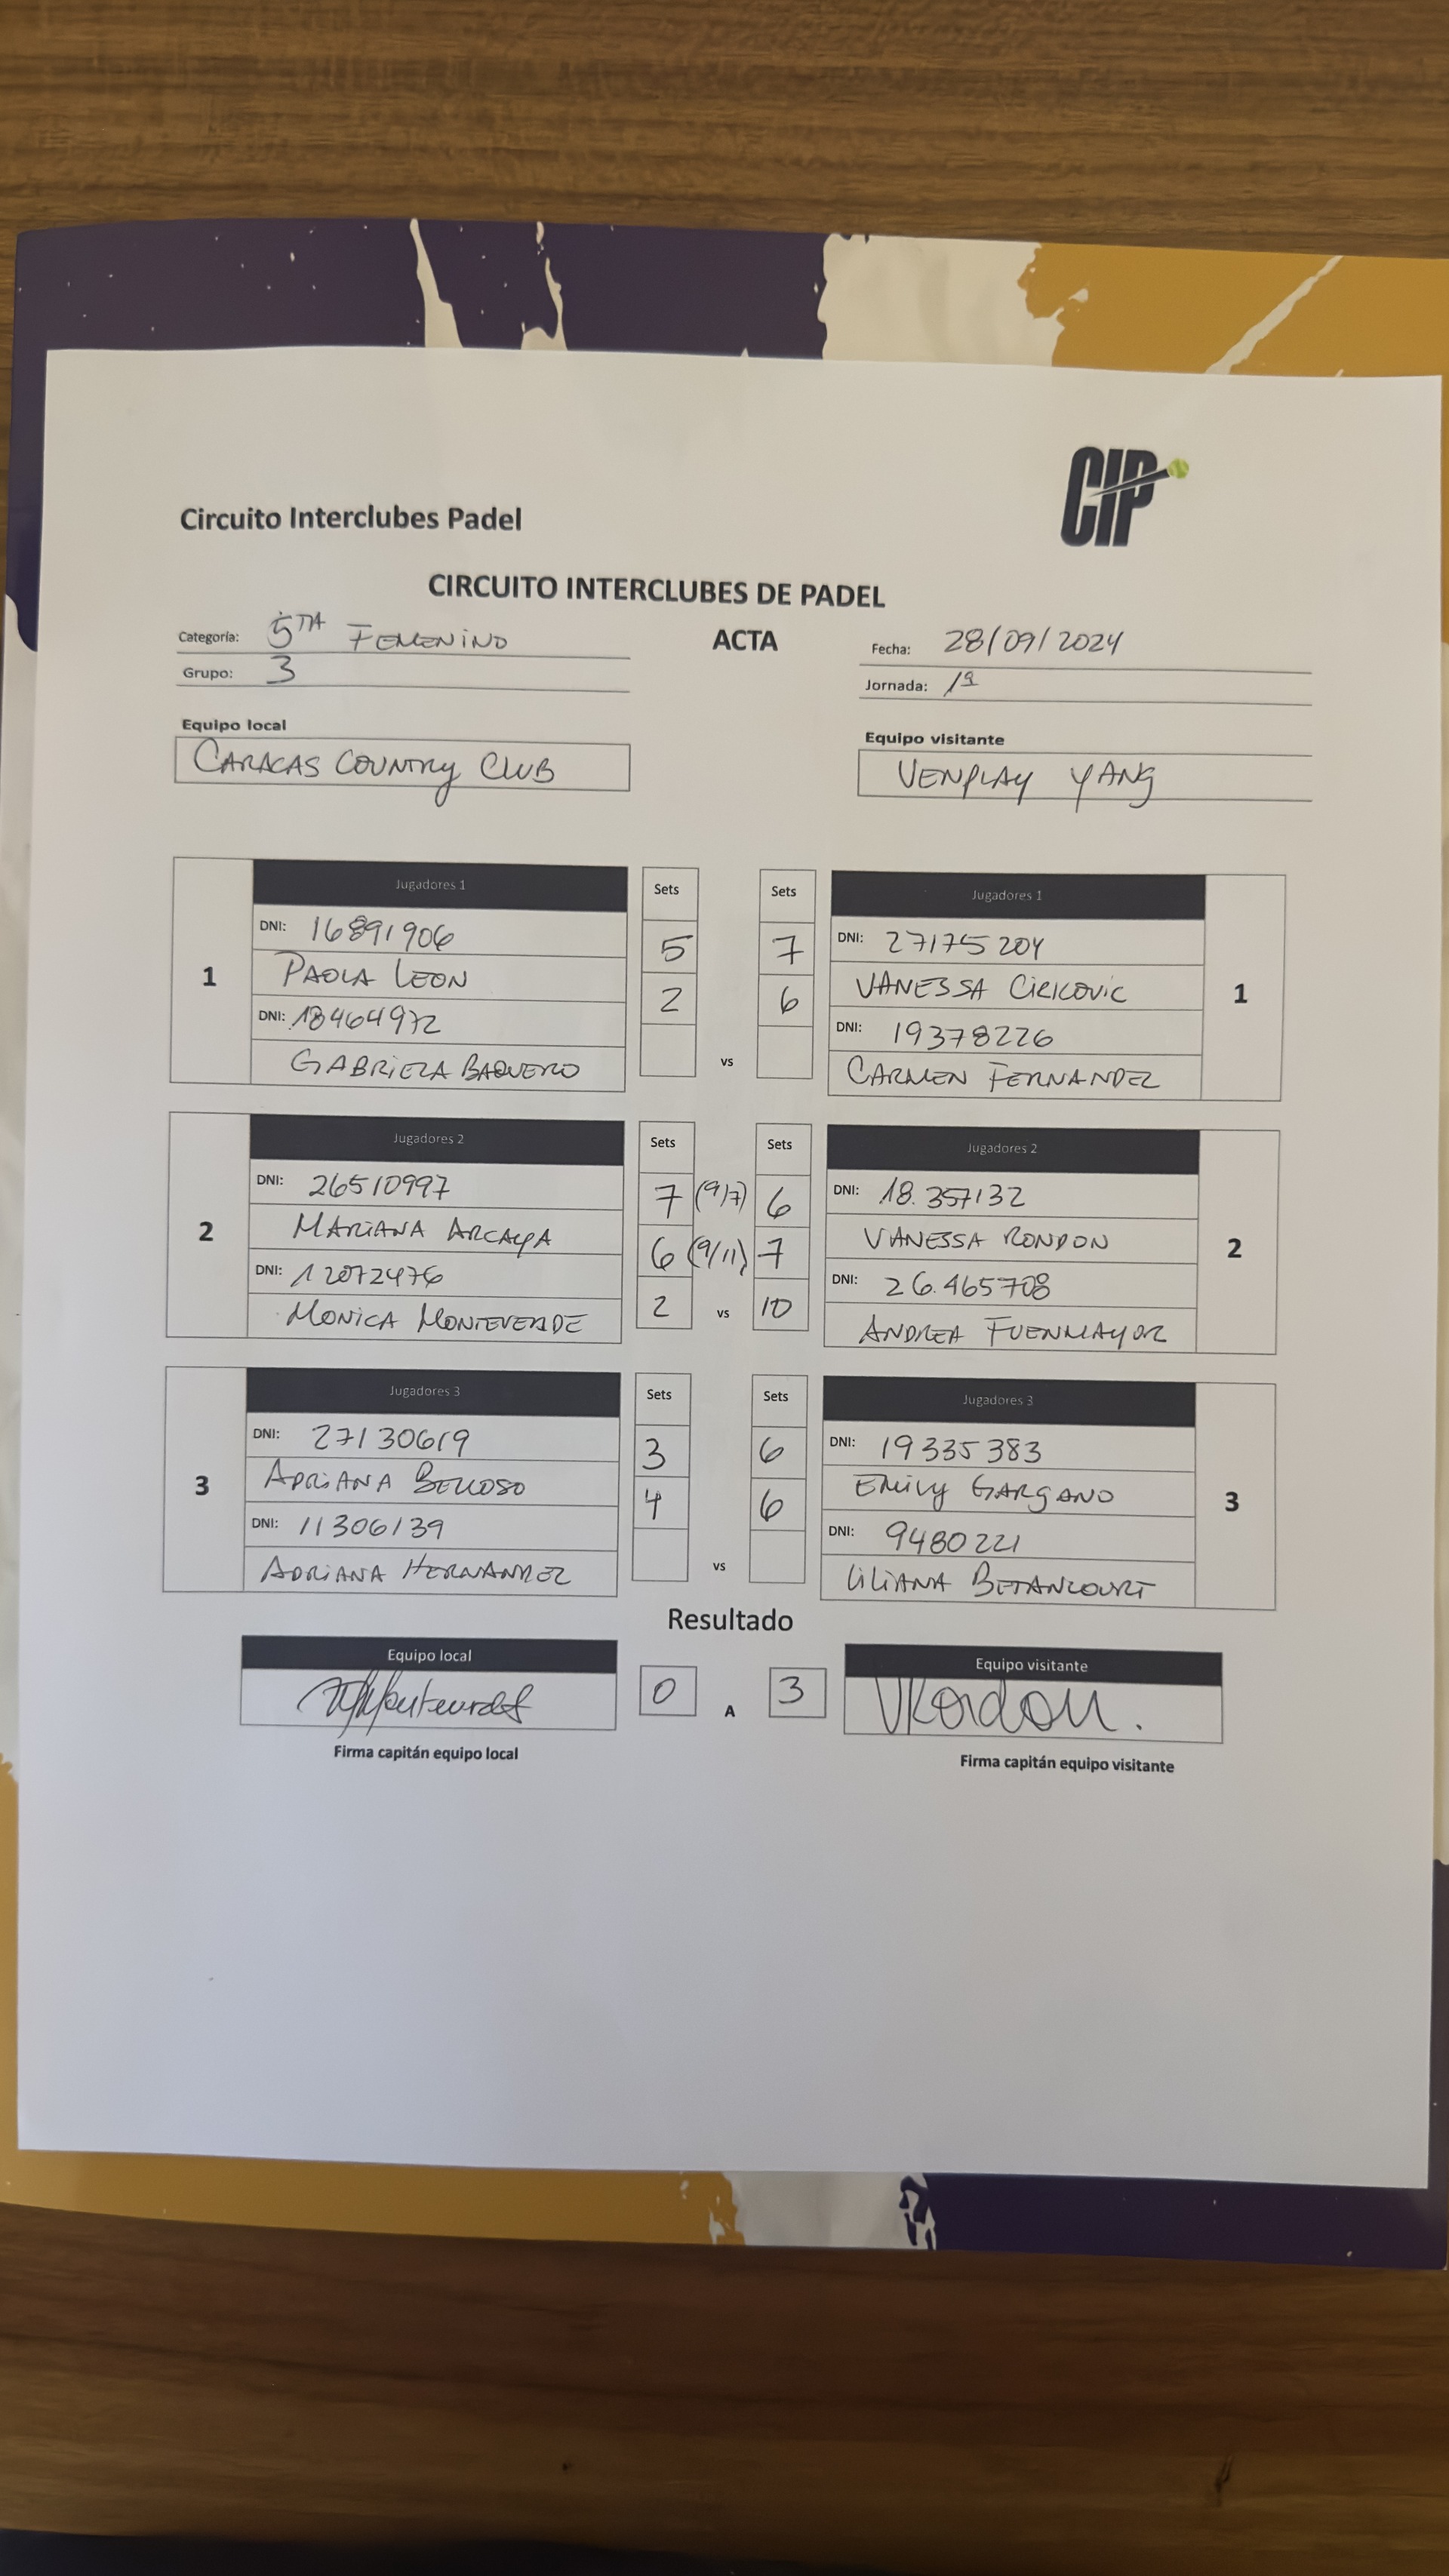 CIP
Circuito Interclubes Padel
CIRCUITO INTERCLUBES DE PADEL
Categoría: 5TA FEMENINO
ACTA
Fecha: 28/09/2024
Grupo: 3
Jornada: 1ª
Equipo local
Equipo visitante
CARACAS COUNTRY CLUB
VENPLAY YANG
1
Jugadores 1
Sets
Sets
Jugadores 1
1
DNI: 16891906
5
7
DNI: 27175204
PAOLA LEON
2
6
VANESSA CIRICOVIC
DNI: 18464972
DNI: 19378226
GABRIELA BAQUERO
vs
CARMEN FERNANDEZ
2
Jugadores 2
Sets
Sets
Jugadores 2
2
DNI: 26510997
7 (9/7) 6
DNI: 18.357132
MARIANA ARCAYA
6 (9/11) 7
VANESSA RONDON
DNI: 12072476
2 vs 10
DNI: 26.465708
MONICA MONTEVERDE
ANDREA FUENMAYOR
3
Jugadores 3
Sets
Sets
Jugadores 3
3
DNI: 27130619
3
6
DNI: 19335383
ADRIANA BELLOSO
4
6
EMILY GARGANO
DNI: 11306139
DNI: 9480221
ADRIANA HERNANDEZ
vs
LILIANA BETANCOURT
Resultado
Equipo local
Equipo visitante
0 A 3
VRondon.
Firma capitán equipo local
Firma capitán equipo visitante